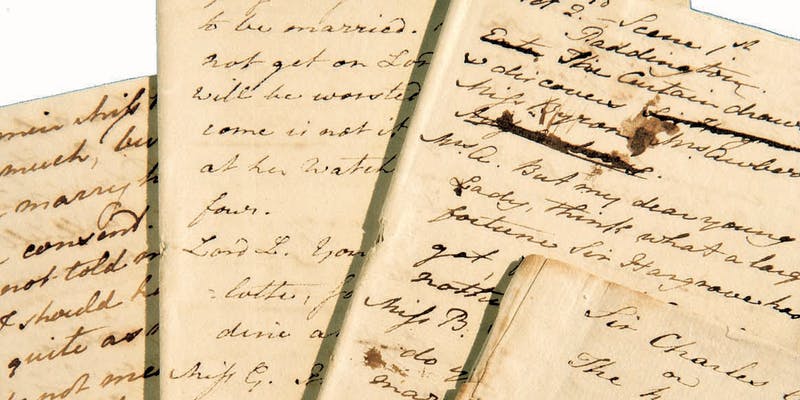 men Miss
much, but
marry h
consent.
not told m
I should be
quite as
not me
to be married.
not get on Lor
will be worsted
come is not it
at her Watch
four.
Lord L. You
-lotte, fo
dine a
Miss G.
Act 2. Scene 1st
Paddington.
Enter The Curtain draws
& discovers
Miss Byron Mrs Awber
Mrs. A. But my dear young
Lady, think what a larg
fortune Sir Hargrave has
got,
nothi
Miss B.
do y
mar
Sir Charles
or
The h